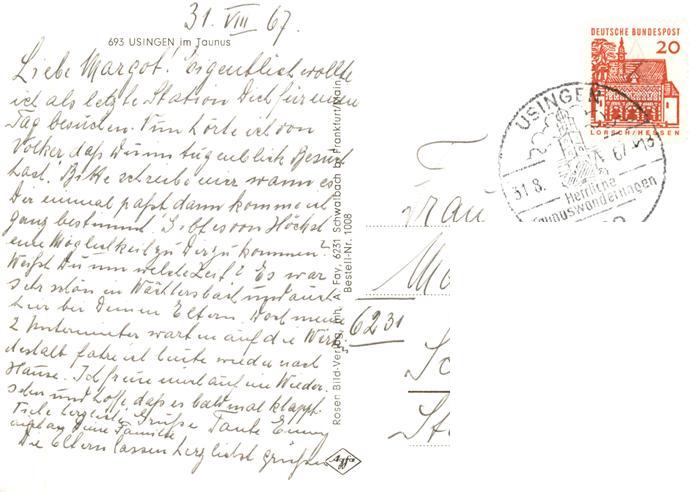 31. VIII 67.
693 USINGEN im Taunus
Liebe Margot! Eigentlich wollte
ich als letzte Station Dich für einen
Tag besuchen. Nun hörte ich von
Volker, daß Du im Augenblick Besuch
hast. Bitte schreibe mir wann es
Dir einmal paßt dann komme ich
ganz bestimmt. Gibt es von Höchst
eine Möglichkeit zu Dir zu kommen?
Weißt Du um welche Zeit? Es war
sehr schön in Wächtersbach und auch
hier bei Deinen Eltern. Doch meine
2 Untermieter warten auf die Wirtin,
deshalb fahre ich heute wieder nach
Hause. Ich freue mich auf ein Wieder-
sehen und hoffe, daß es bald mal klappt.
Viele herzliche Grüße Tante Emmy
auch an Deine Familie
Die Eltern lassen herzlichst grüßen
Rosen Bild-Verlag, Inh. A. Fay, 6231 Schwalbach b. Frankfurt/Main
Bestell-Nr. 1008
Agfa
DEUTSCHE BUNDESPOST
20
LORSCH/HESSEN
USINGEN
31.8. 67-13
Herrliche
Taunuswanderungen
Frau
Ma
6231
Sc
St